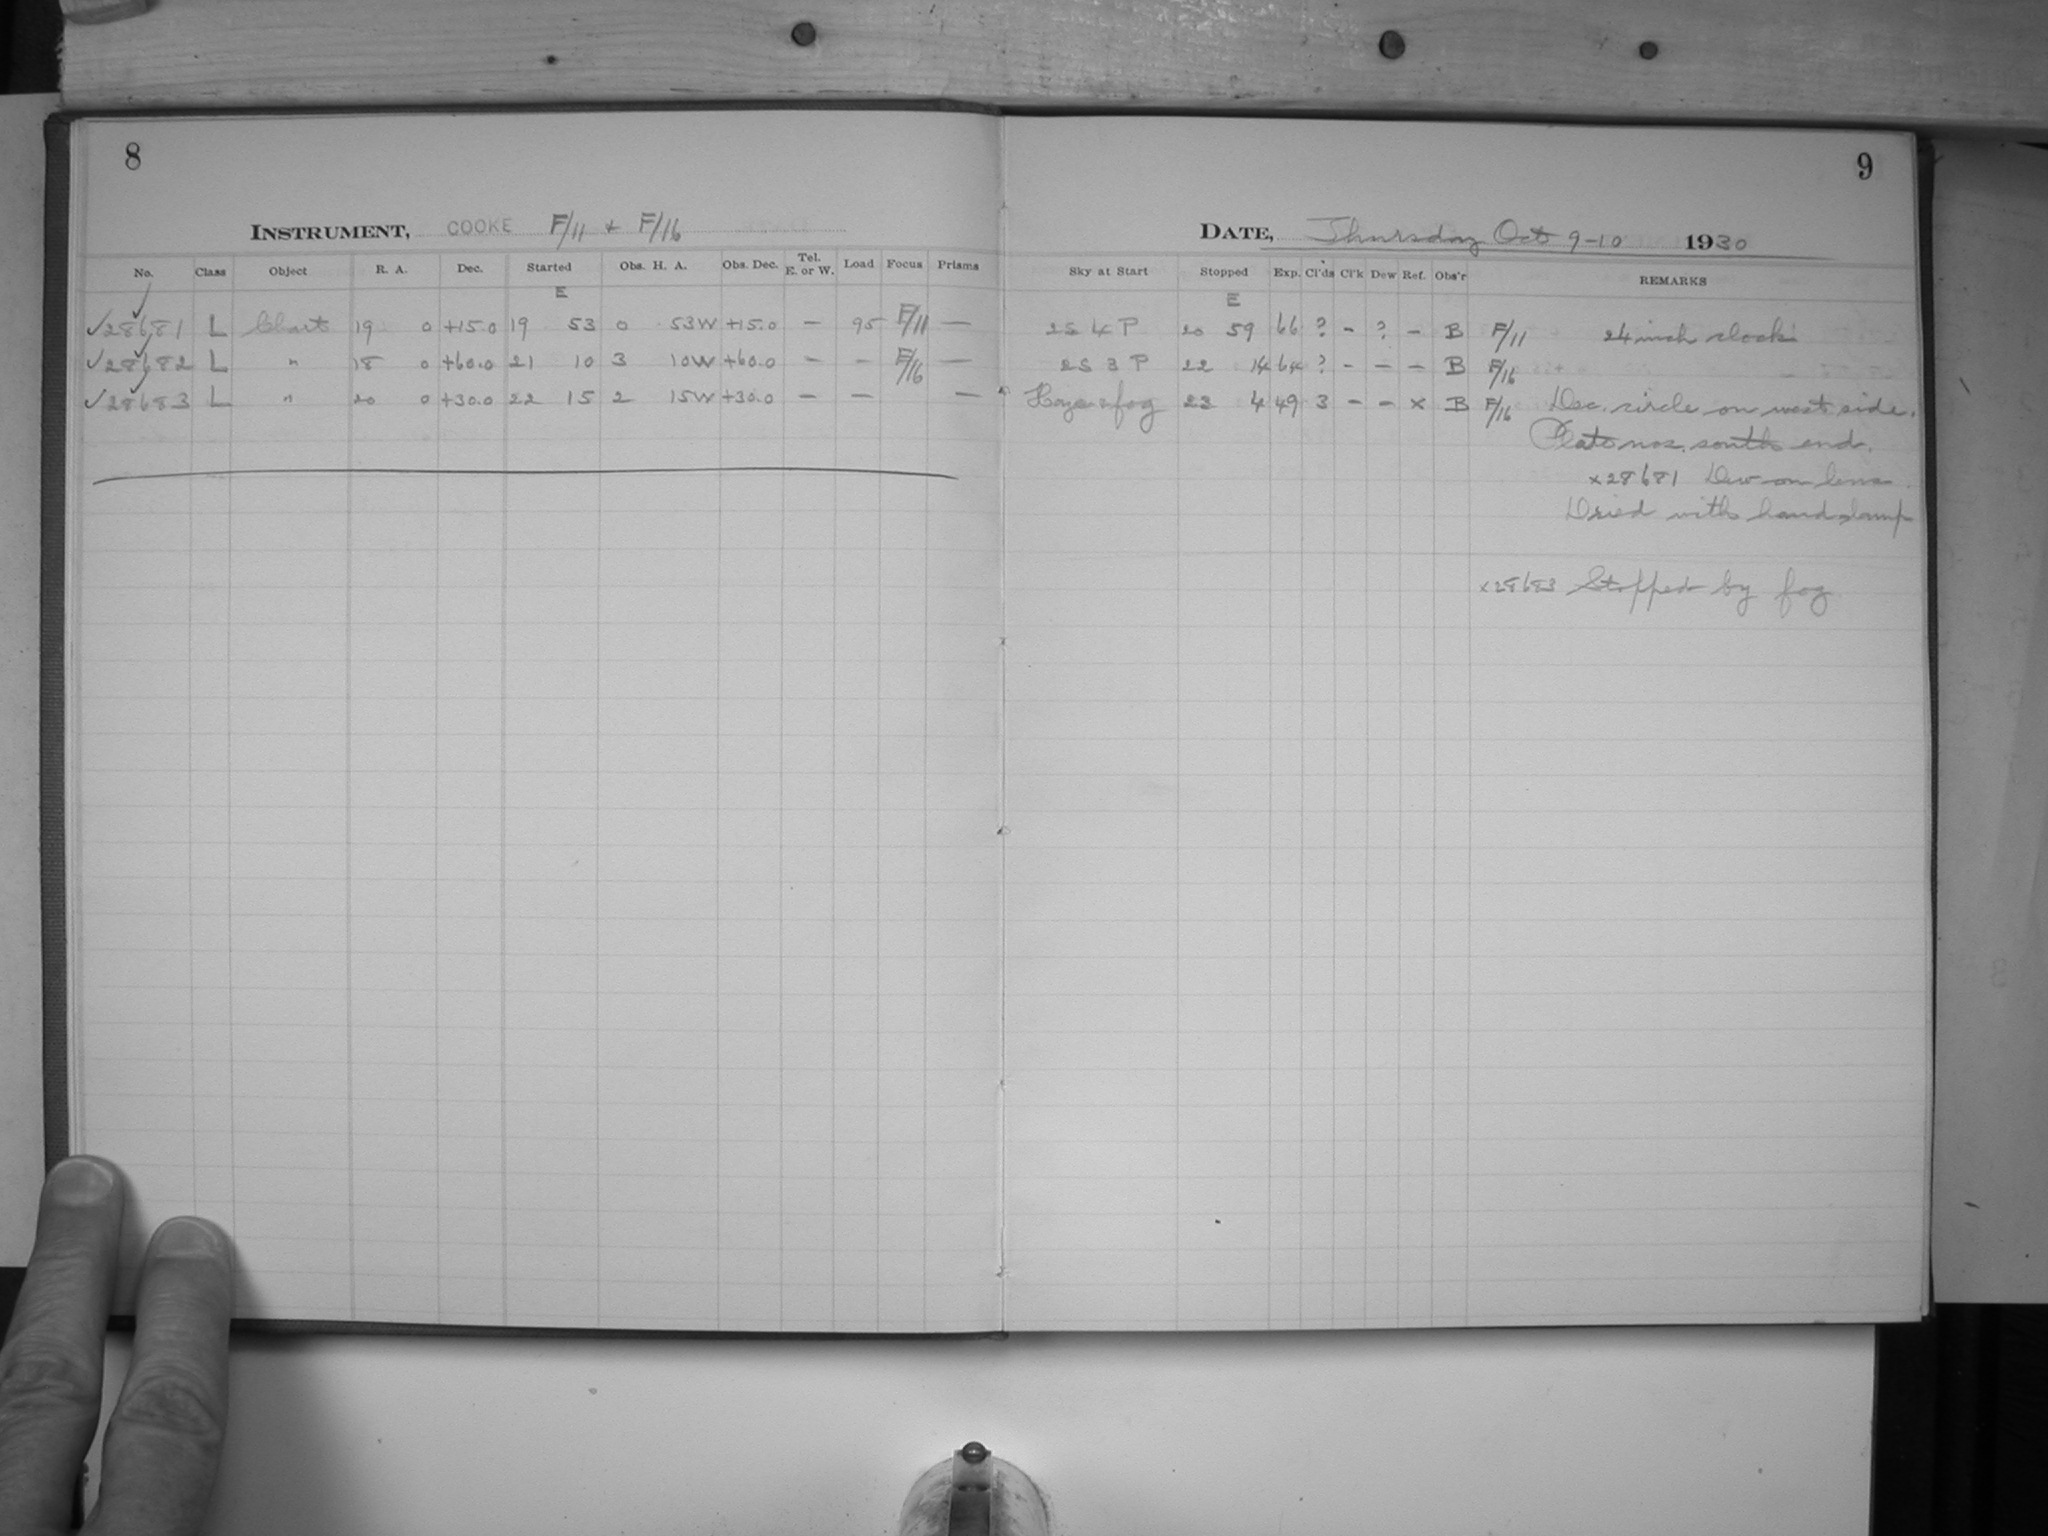 8
INSTRUMENT, COOKE F/11 + F/16
No. Class Object R. A. Dec. Started Obs. H. A. Obs. Dec. Tel. E. or W. Load Focus Prisms
E
✓28681 L Chart 19 0 +15.0 19 53 0 53W +15.0 — 95 F/11 —
✓28682 L " 18 0 +60.0 21 10 3 10W +60.0 — — F/16 —
✓28683 L " 20 0 +30.0 22 15 2 15W +30.0 — — —
9
DATE, Thursday Oct 9-10 1930
Sky at Start Stopped Exp. Cl'ds Cl'k Dew Ref. Obs'r REMARKS
E
2S 4 P 20 59 66 ? - ? - B F/11 24 inch clock
2S 3 P 22 14 64 ? - - - B F/16
Haze & fog 23 4 49 3 - - x B F/16 Dec. circle on west side.
Plate nos. south end.
x28681 Dew on lens.
Dried with hand lamp
x28683 Stopped by fog